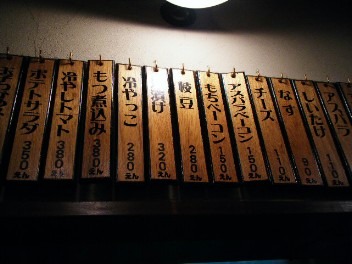 ポテトサラダ 350えん
冷やしトマト 380えん
もつ煮込み 380えん
冷やっこ 280えん
漬け 320えん
枝豆 280えん
もちベーコン 200えん
アスパラベーコン 150えん
チーズ 150えん
なす 110えん
しいたけ